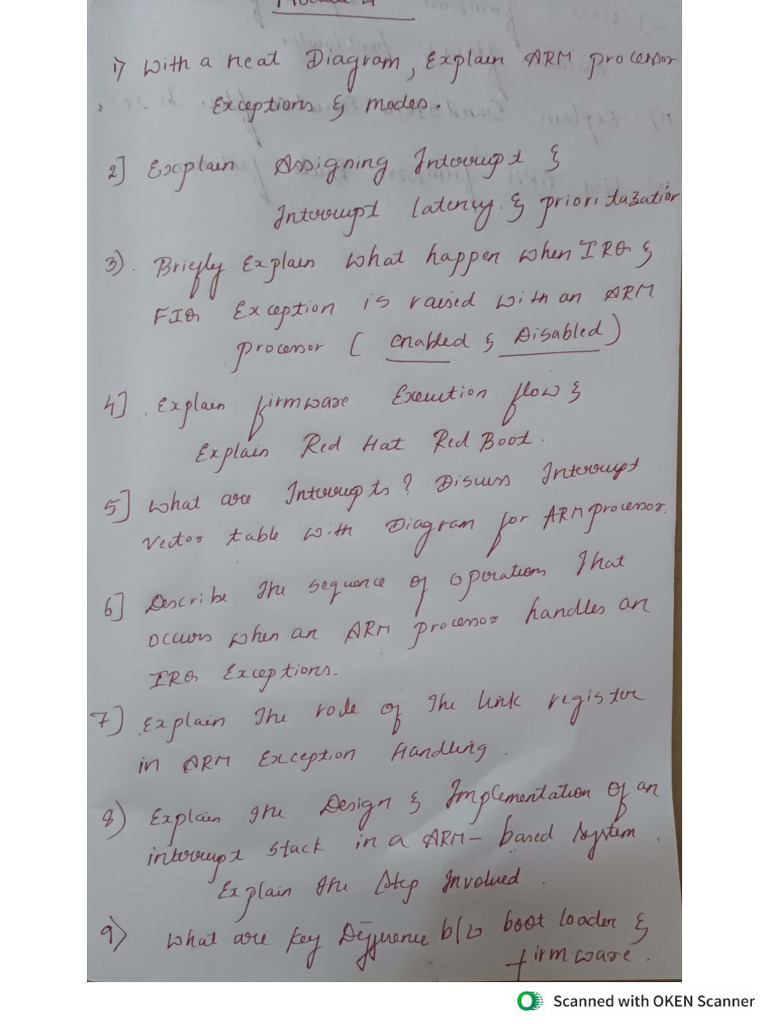 1) With a neat Diagram, Explain ARM processor
Exceptions & modes.
2] Explain Assigning Interrupt &
Interrupt latency & prioritazation
3). Briefly Explain what happen when IRQ &
FIQ Exception is raised with an ARM
processor ( enabled & Disabled )
4] . Explain firmware Execution flow &
Explain Red Hat Red Boot.
5] what are Interrupts? Discuss Interrupt
Vector table with Diagram for ARM processor.
6] Describe the sequence of operations That
occurs when an ARM processor handles an
IRQ Exceptions.
7] Explain The role of The link register
in ARM Exception Handling .
8) Explain the Design & Implementation of an
interrupt stack in a ARM - based system .
Explain the Step Involued .
9) what are key Difference b/w boot loader &
firmware .
Scanned with OKEN Scanner